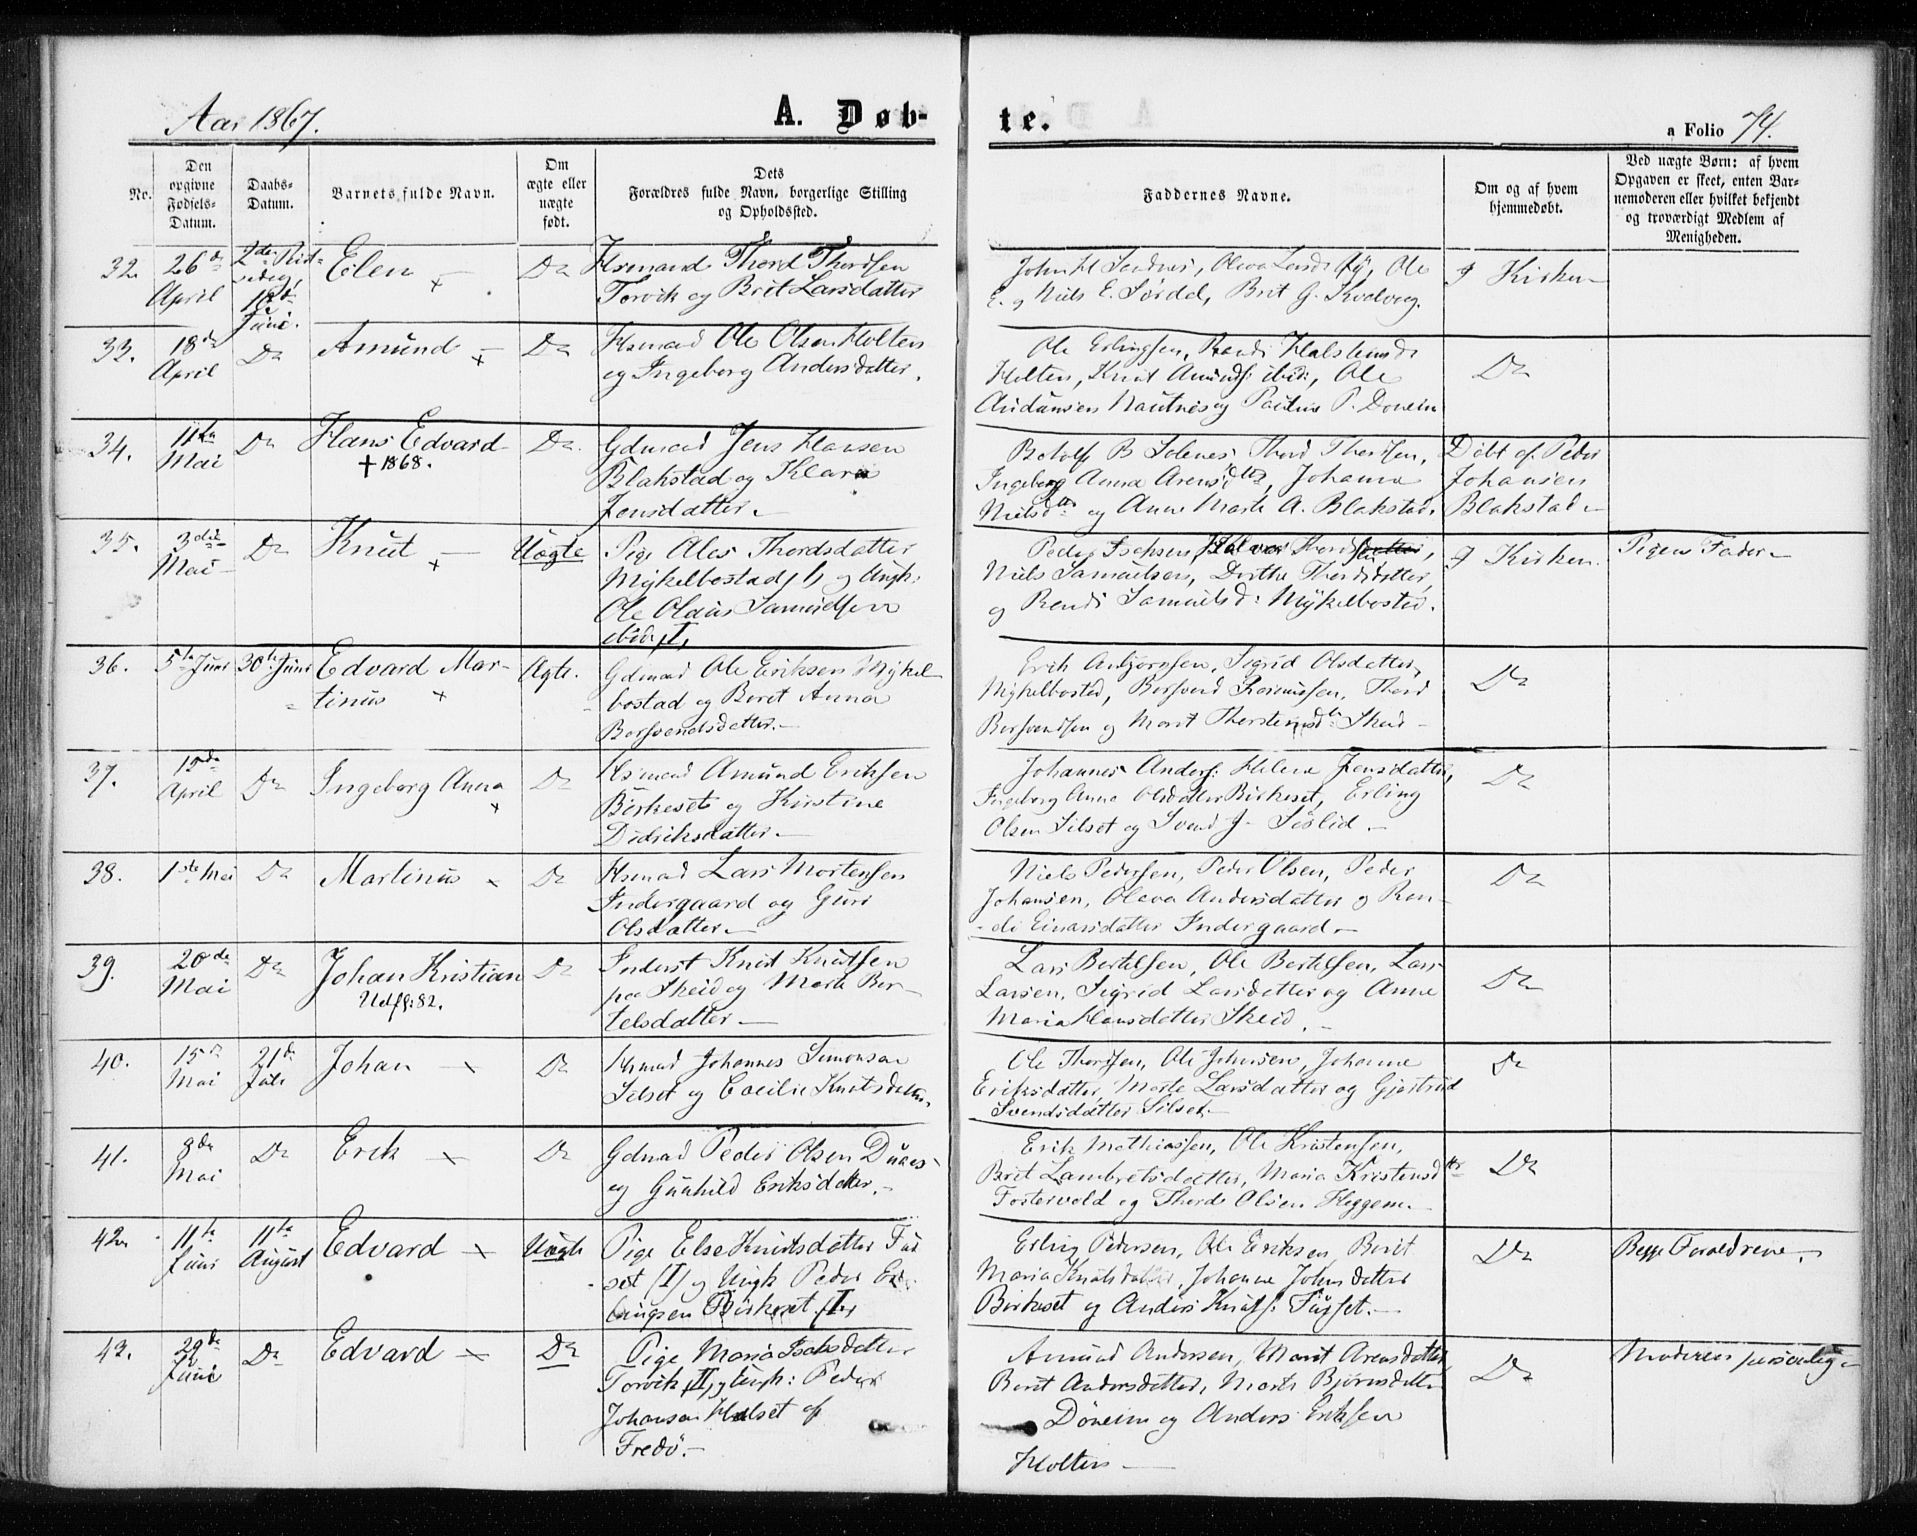 Aar 1867.
A. Døb-
te.
a Folio 74.
No.
Den opgivne Fødsels-Datum.
Daabs-Datum.
Barnets fulde Navn.
Om ægte eller uægte født.
Dets Forældres fulde Navn, borgerlige Stilling og Opholdssted.
Faddernes Navne.
Om og af hvem hjemmedøbt.
Ved uægte Børn: af hvem Opgaven er skeet, enten Barnemoderen eller hvilket bekjendt og troværdigt Medlem af Menigheden.
32. 26de April
2den
Juni.
Elen
Do
Husmand Thord Thordsen
Torvik og Brit Larsdatter
John H Sandnes, Ole
E. og Niels E. Sørdal, Brit G. Kvalvåg.
I Kirken
33. 18de April
Do
Amund
Do
Husmand Ole Olsen Holten
og Ingeborg Andersdatter.
Ole Erlingsen, Randi Halstensd
Holten, Knut Amunds: ibid:, Ole
Audunsen Nautnes og Paulus P. Doneim
Do
34. 11te Mai
Do
Hans Edvard
† 1868.
Do
Gdmand Jens Hansen
Blakstad og Klara
Jonsdatter
Botolf B Solenes, Thord Thordsen,
Ingeborg Anna Arensdtr, Johanna
Nielsdtr og Anne Marte A. Blakstad.
Døbt af Peder
Johansen
Blakstad
35. 3die Mai
Do
Knut
Uægte
Pige Ales Thordsdatter
Mykelbostad /1/ og Ungk:
Ole Olaus Samuelsen
ibid: /I/
Peder Isaksen, Halvor Thordsen,
Niels Samuelsen, Dorthe Thordsdatter,
og Randi Samuelsd: Mykelbostad.
I Kirken.
Pigens Fader
36. 5te Juni
30te Juni
Edvard Mar-
tinus
Ægte.
Gdmand Ole Eriksen Mykel-
bostad og Beret Anna
Borsvendsdatter.
Erik Asbjørnsen, Sigrid Olsdatter,
Mykelbostad, Borsvend Rasmussen, Thord
Borsvendsen og Marit Thorstensdtr Skeid
Do
37.
April
Do
Ingeborg Anna
Do
Husmand Amund Eriksen
Birkeset og Kirstine
Didriksdatter
Johannes Anders: Helene Jensdatter,
Ingeborg Anna Olsdatter Birkeset, Erling
Olsen Silset og Svend J. Sølid.
Do
38. 1ste Mai
Do
Martinus
Do
Husmand Lars Mortensen
Indergaard og Guri
Olsdatter
Niels Pedersen, Peder Olsen, Peder
Johansen, Oleva Andersdatter og Ran-
di Einarsdatter Indergaard
Do
39. 20de Mai
Do
Johan Kristian
Udfl: 82.
Do
Inderst Knut Knutsen
paa Skeid og Marte Ber-
telsdatter
Lars Bertelsen, Ole Bertelsen, Lars
Larsen, Sigrid Larsdatter og Anne
Maria Hansdatter Skeid.
Do
40. 15de Mai
21de Juli
Johan
Do
Husmand Johannes Simonsen
Silset og Cecilie Knutsdatter.
Ole Thordsen, Ole Johnsen, Johanne
Eriksdatter, Marte Larsdatter og Gjertrud
Svendsdatter Silset
Do
41. 8de Mai
Do
Erik
Do
Gdmad Peder Olsen Duaas
og Gunhild Eriksdatter.
Erik Mathiassen, Ole Kristensen,
Brit Lambretsdatter, Maria Kristensdtr
Fostervold og Thord Olsen Heggem.
Do
42. 11te Juni
11te August
Edvard
Uægte
Pige Else Knutsdatter Fus-
set /I/ og Ungk Peder Er-
lingsen Birkeset /I/
Erling Pedersen, Ole Eriksen, Berit
Maria Knutsdatter, Johanne Johnsdatter
Birkeset og Anders Knuts: Fusset.
Do
Begge Forældrene.
43. 29de Juni
Do
Edvard
Do
Pige Maria Isaksdatter
Torvik /II/ og Ungk: Peder
Johansen Halset af
Fredø.
Amund Andersen, Marit Arensdatter
Berit Andersdatter, Marte Bjørnsdatter
Døneim og Anders Eriksen
Holten
Do
Moderen personlig